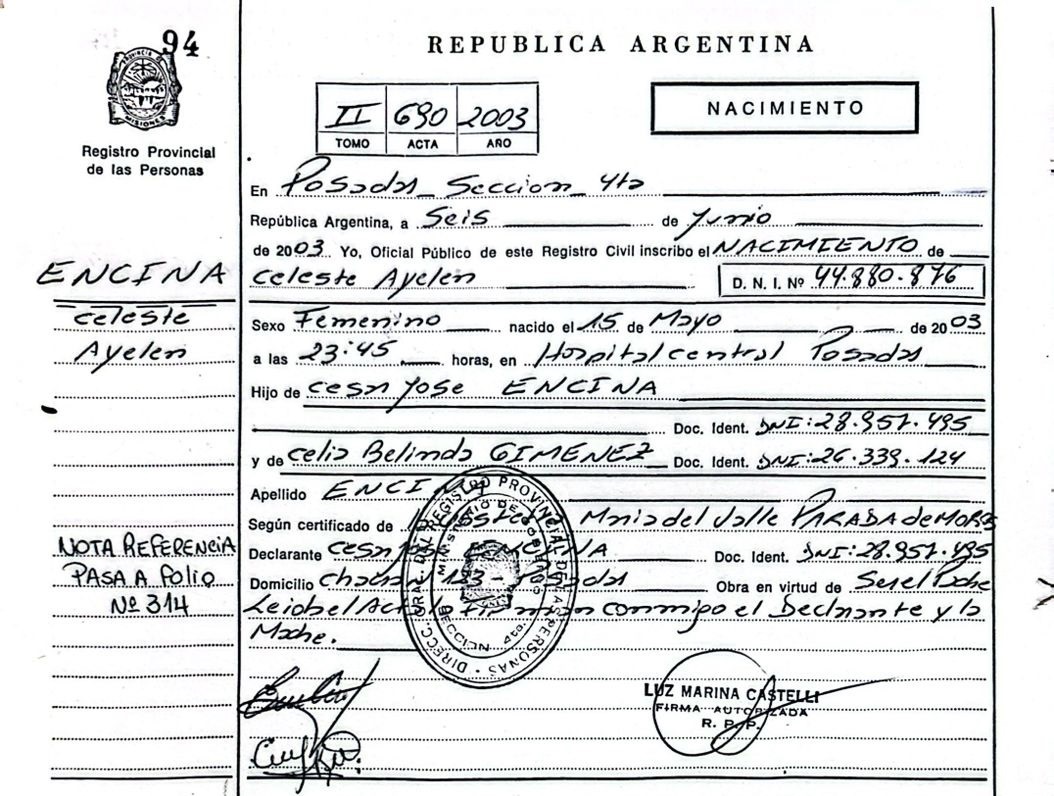 94
PROVINCIA DE MISIONES
Registro Provincial
de las Personas
REPUBLICA ARGENTINA
II 690 2003
TOMO ACTA AÑO
NACIMIENTO
En Posadas Seccion 4ta
República Argentina, a Seis de Junio
de 2003 Yo, Oficial Público de este Registro Civil inscribo el NACIMIENTO de
Celeste Ayelen D. N. I. Nº 44.880.876
ENCINA
Celeste
Ayelen
Sexo Femenino nacido el 15 de Mayo de 2003
a las 23:45 horas, en Hospital central Posadas
Hijo de Cesar Jose ENCINA
Doc. Ident. DNI: 28.957.495
y de Celia Belinda GIMENEZ Doc. Ident. DNI: 26.339.124
Apellido ENCINA
Según certificado de Maria del Valle PARADA de
Declarante Cesar Jose ENCINA Doc. Ident. DNI: 28.957.495
Domicilio 123 - Posadas Obra en virtud de Ser el Padre
Leida el Acta la firman conmigo el Declarante y la
Madre.
NOTA REFERENCIA
PASA A FOLIO
Nº 314
DIRECC. GRAL. DEL REGISTRO PROVINCIAL DE LAS PERSONAS
MINISTERIO DE GOBIERNO
SECCION 4ta.
LUZ MARINA CASTELLI
FIRMA AUTORIZADA
R. P. P.